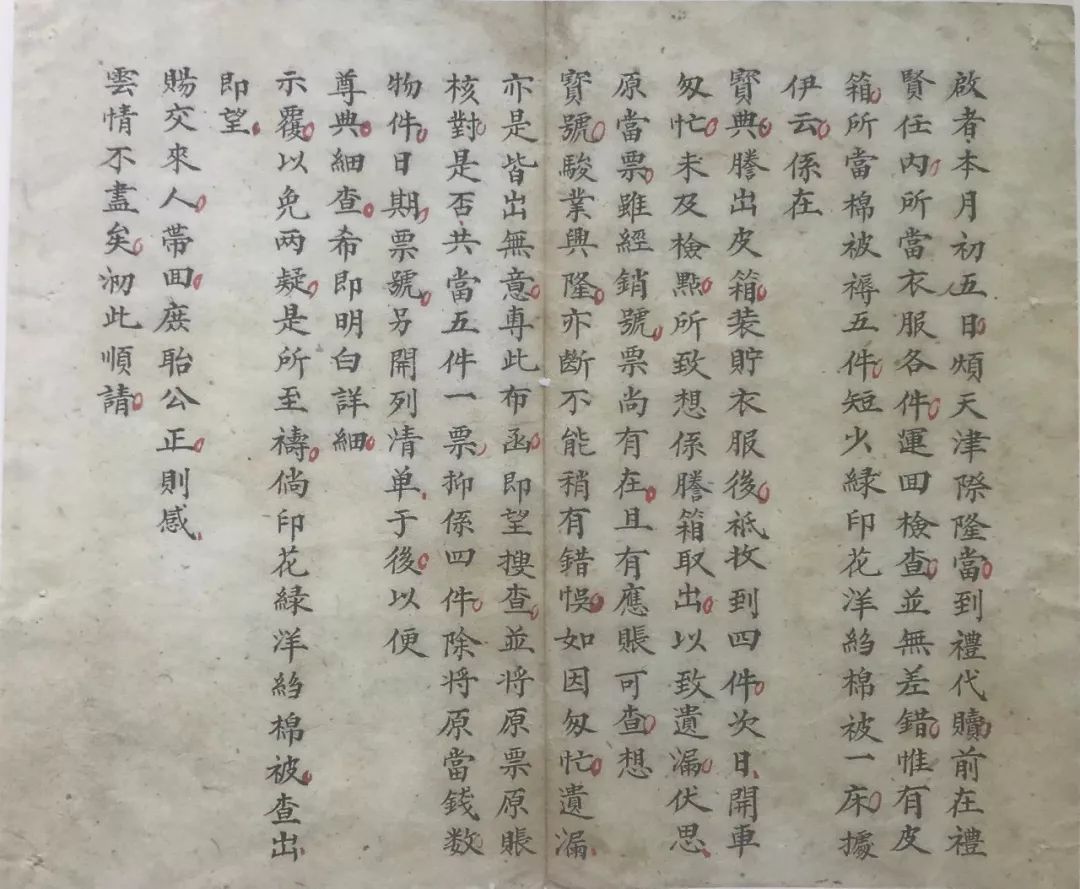 啟者本月初五日煩天津際隆當到禮代贖前在禮
賢任内所當衣服各件運囬檢查並無差錯惟有皮
箱所當棉被褥五件短少緑印花洋縐棉被一床據
伊云係在
寳典謄出皮箱裝貯衣服後祇收到四件次日開車
匆忙未及檢點所致想係謄箱取出以致遺漏伏思
原當票雖經銷號票尚有在且有應賬可查想
寳號駿業興隆亦斷不能稍有錯悞如因匆忙遺漏
亦是皆出無意專此布函即望搜查並将原票原賬
核對是否共當五件一票抑係四件除将原當錢数
物件日期票號另開列清单于後以便
尊典細查希即明白詳細
示覆以免两疑是所至禱倘印花緑洋縐棉被查出
即望
賜交來人帶囬庻昭公正則感
雲情不盡矣沏此順請